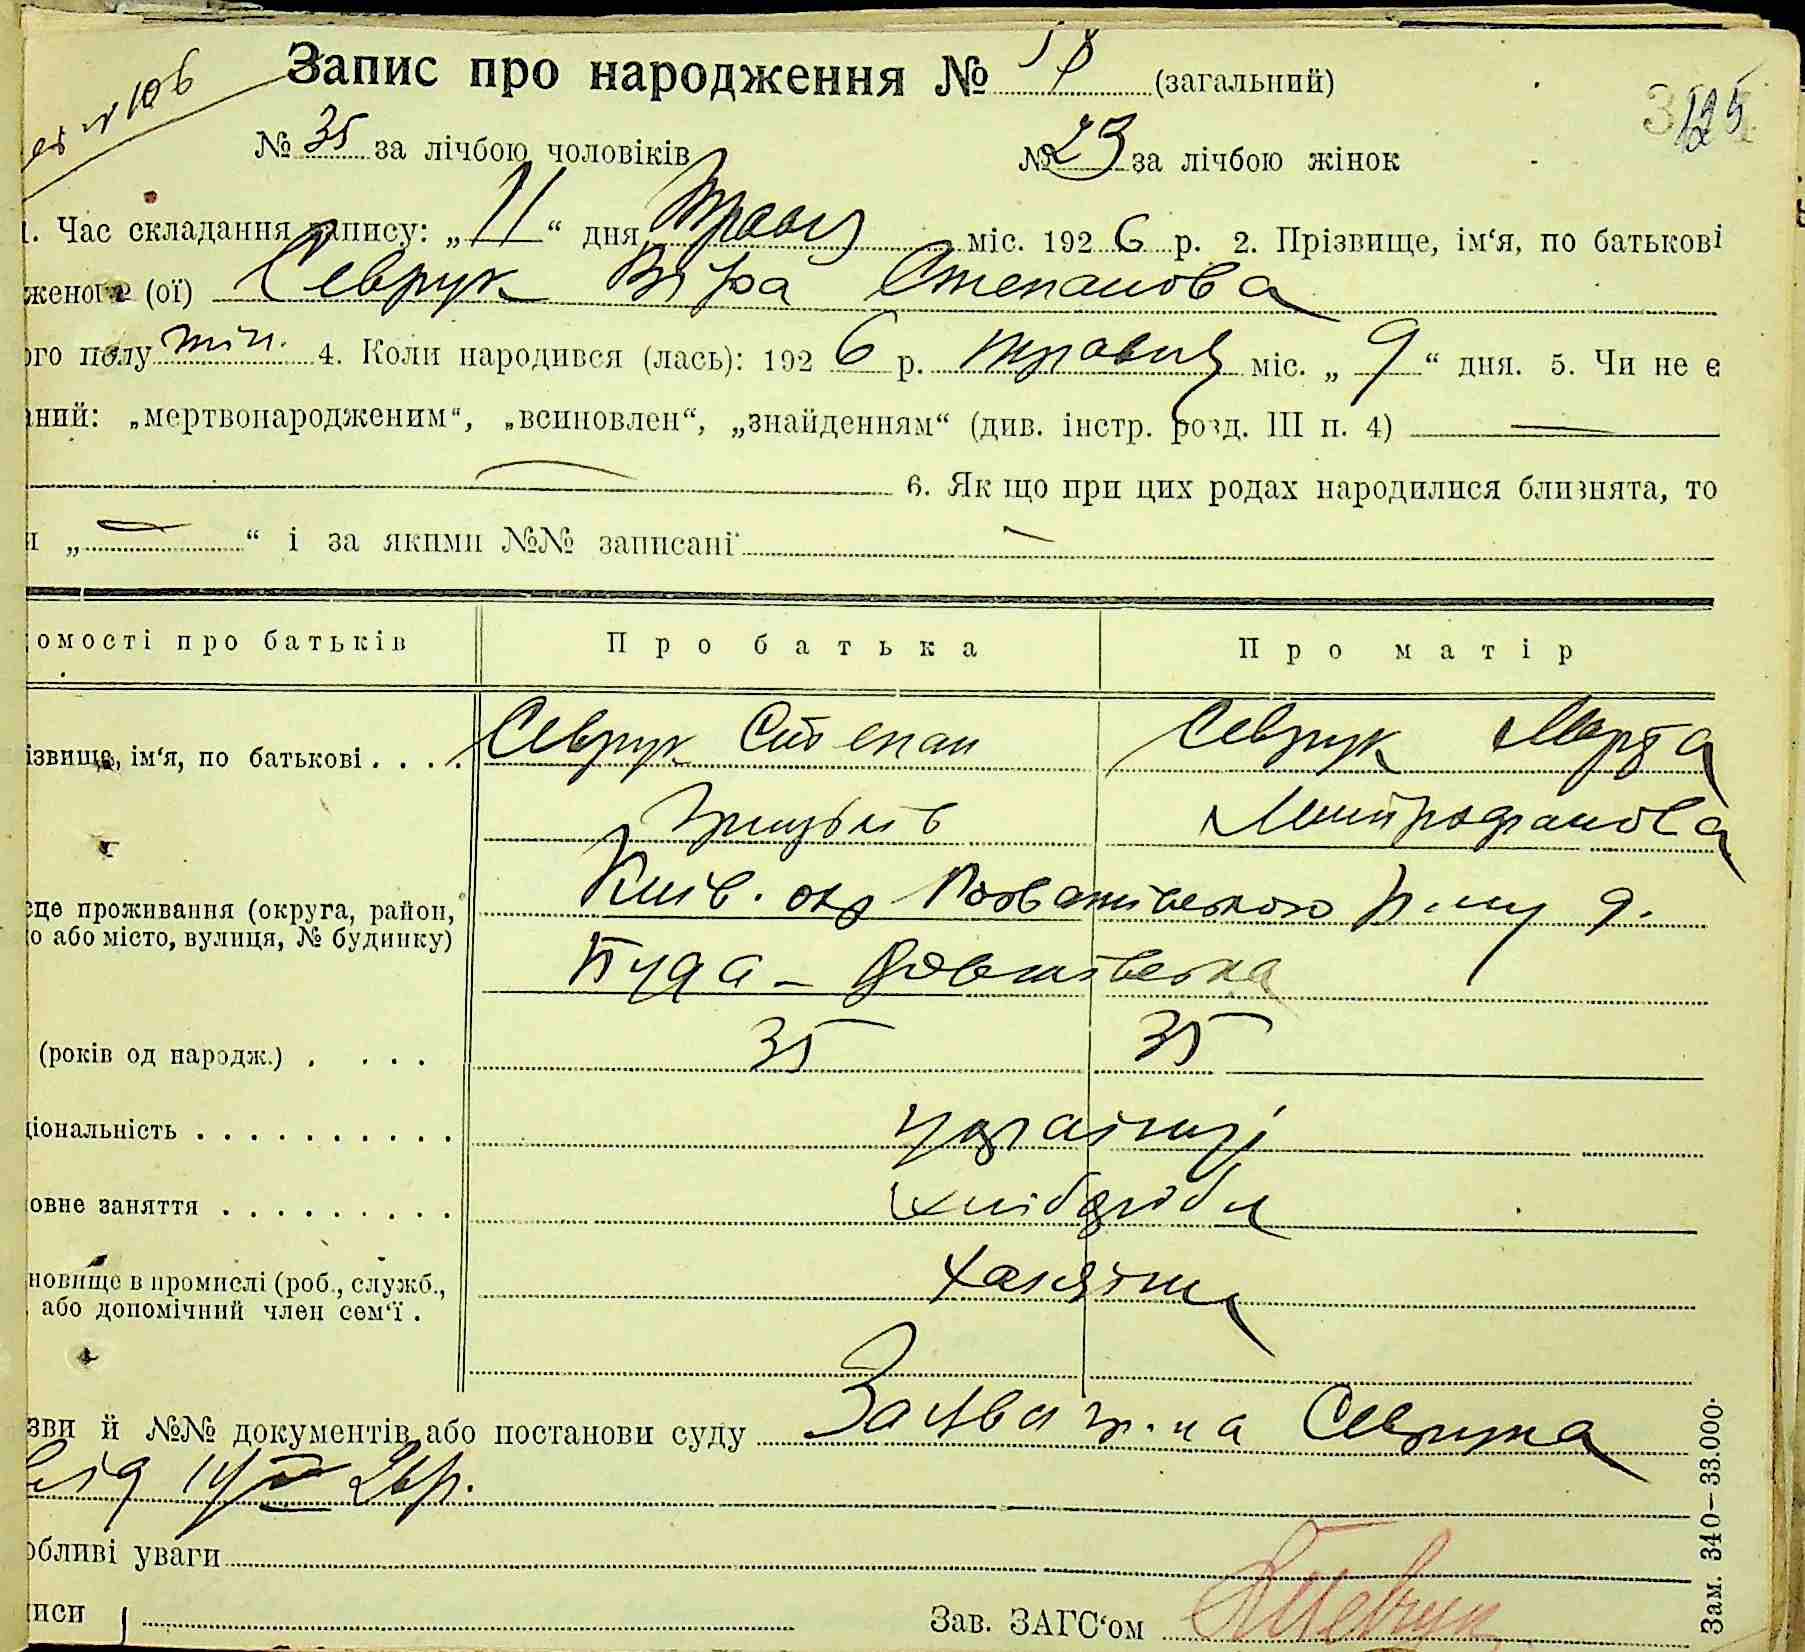 Запис про народження № 58 (загальний)
№ 106
№ 35 за лічбою чоловіків № 23 за лічбою жінок
125
1. Час складання запису: „11“ дня травня міс. 1926 р. 2. Прізвище, ім‘я, по батькові
женого (ої) Севрук Віра Степанова
ого полу жін. 4. Коли народився (лась): 1926 р. травня міс. „9“ дня. 5. Чи не є
аний: „мертвонародженим“, „всиновлен“, „знайденням“ (див. інстр. розд. III п. 4) —
— 6. Як що при цих родах народилися близнята, то
и „—“ і за якими №№ записані —
омості про батьків Про батька Про матір
ізвище, ім‘я, по батькові . . . . Севрук Степан Севрук Марта
Грицьків Митрофанова
сце проживання (округа, район, Київ. окр Розважівського р-ну д.
о або місто, вулиця, № будинку)
Буда - Вовчківська
(років од народж.) . . . . 35 35
ціональність . . . . . . . . . . українці
овне заняття . . . . . . . . . хлібороби
новище в промислі (роб., служб., хазяїни
або допомічний член сем‘ї .
зви й №№ документів або постанови суду Заява гр-на Севрука
від 11/V 26 р.
обливі уваги
иси
Зав. ЗАГС‘ом
Зам. 340—33.000.